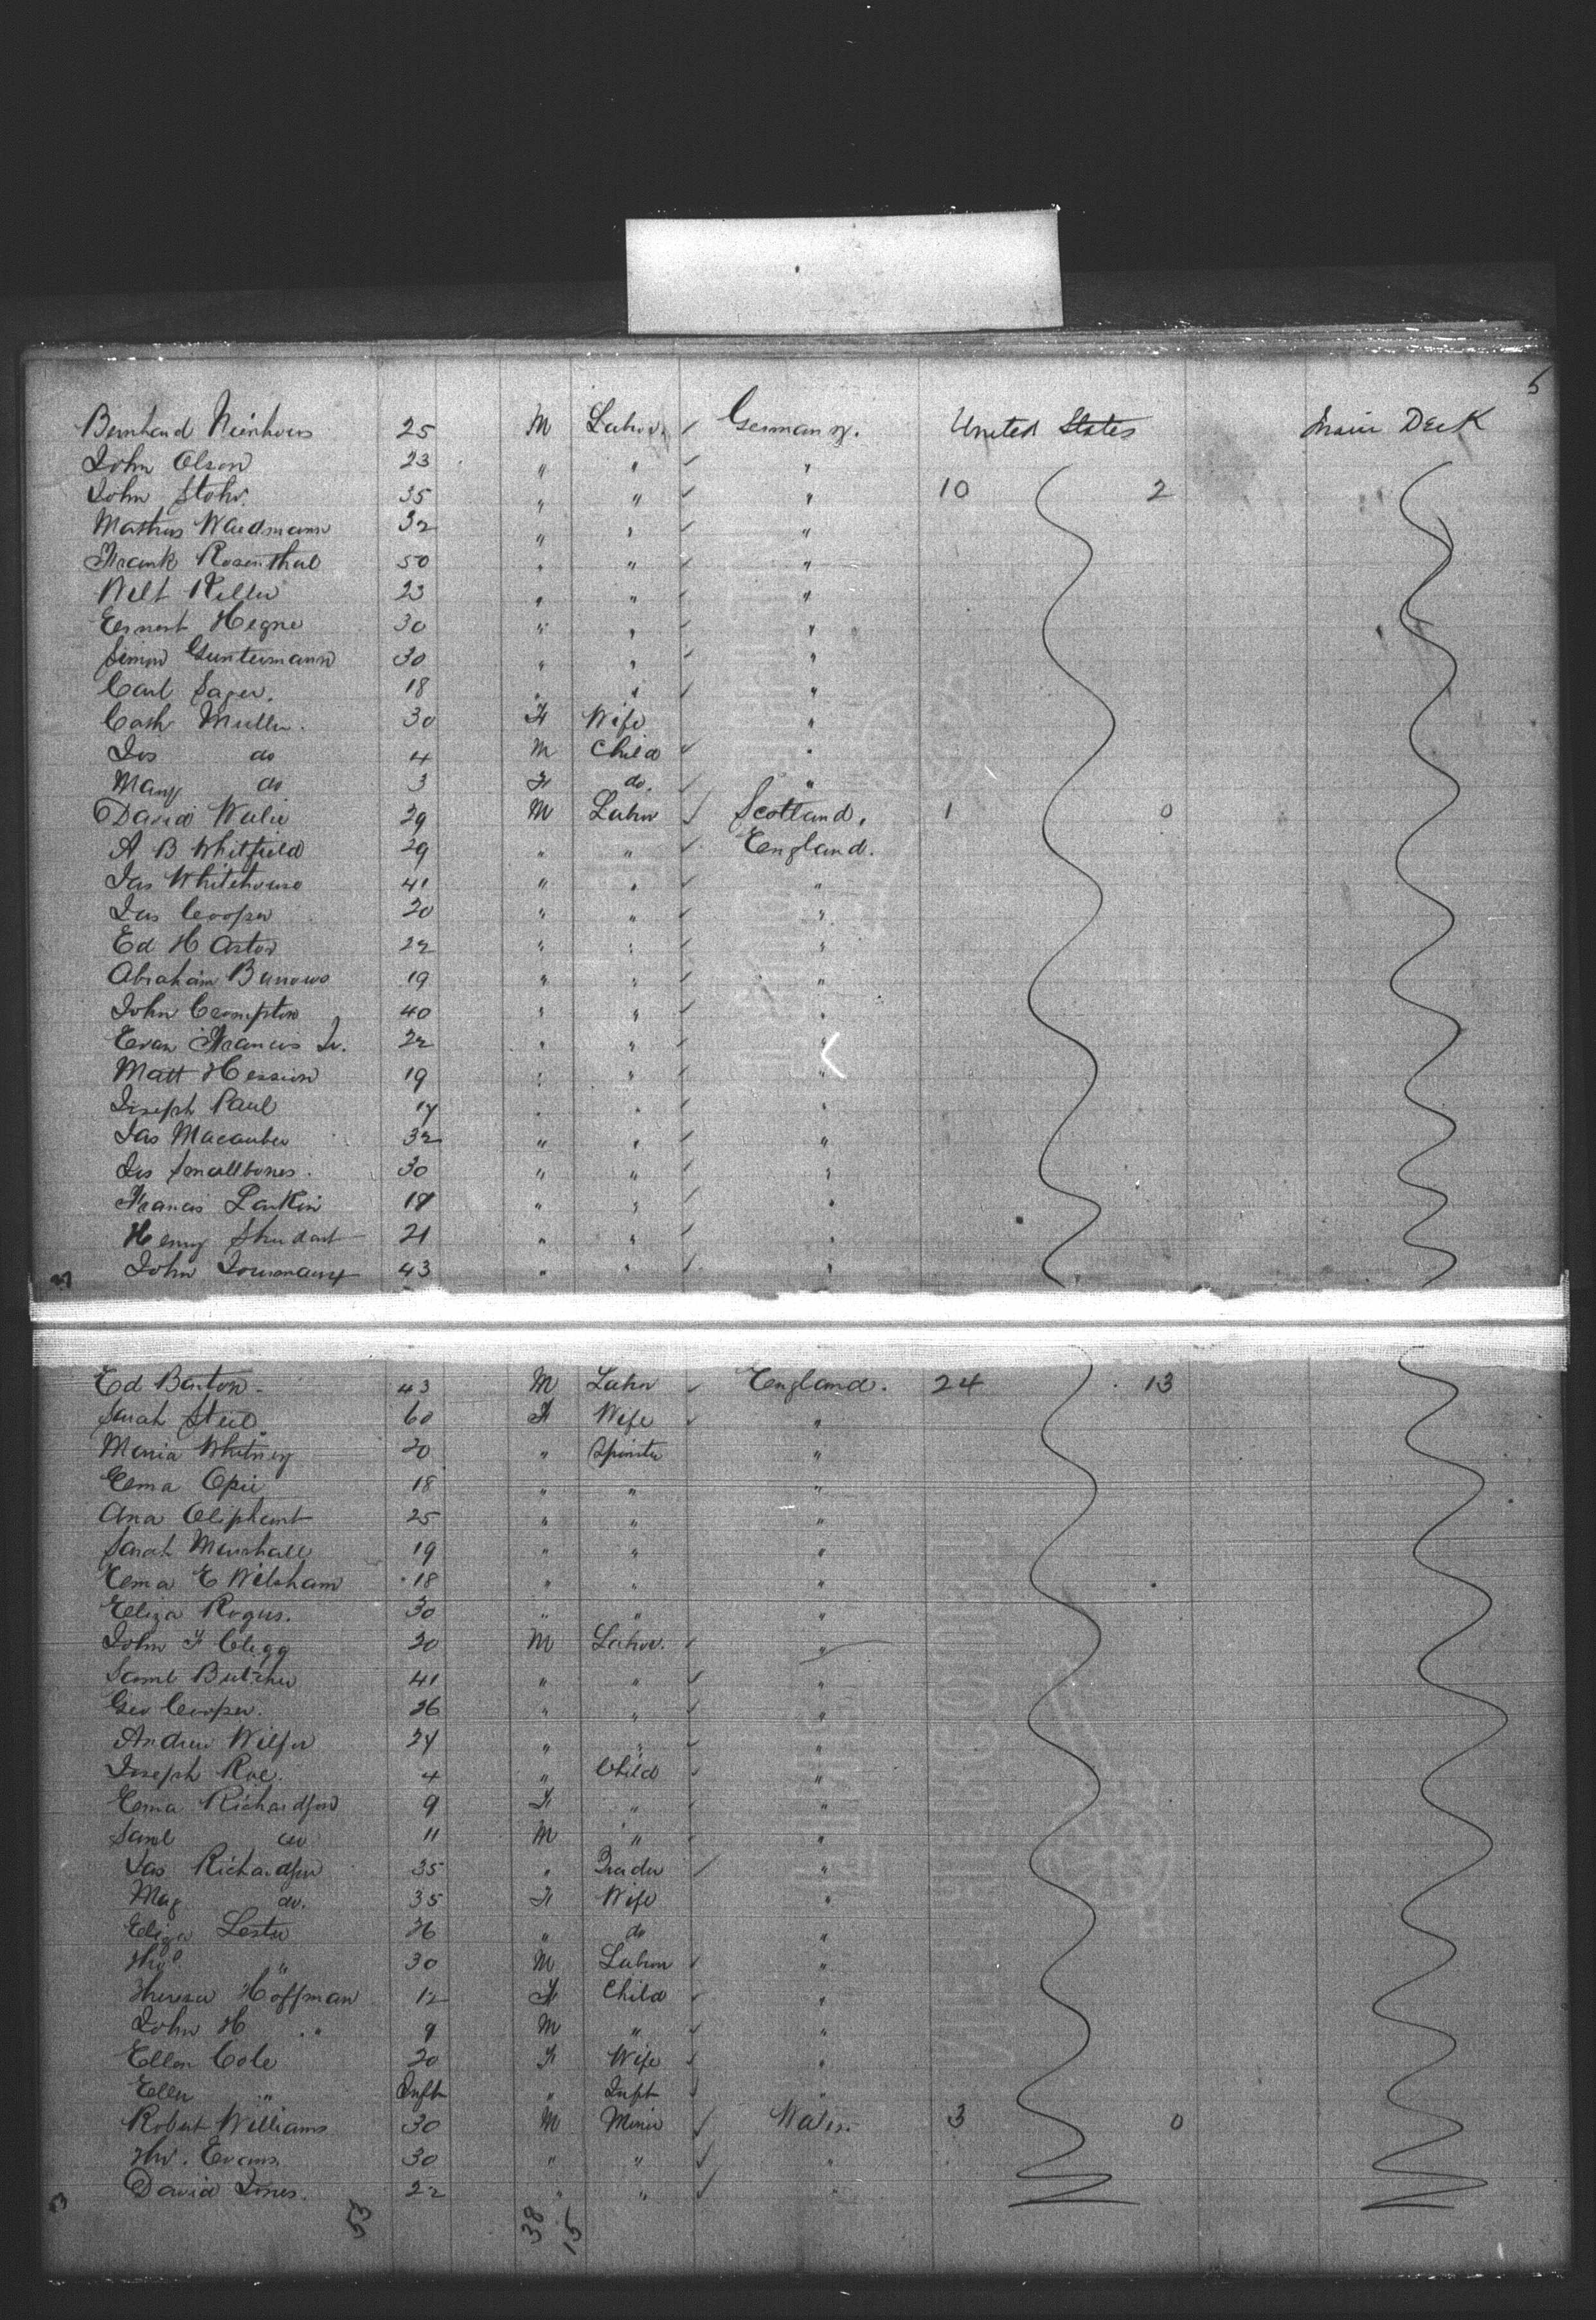 5
Bernhard Nienhaus 25 M Labor. ✓ Germany. United States Main Deck
John Olson 23 " " ✓ "
John Stohr. 35 " " ✓ " 10 2
Mathias Waidmann 32 " " ✓ "
Frank Rosenthal 50 " " ✓ "
23 " " ✓ "
Ernest Hegne 30 " " ✓ "
Simon Guntermann 30 " " ✓ "
Carl Sager. 18 " " ✓ "
Cath Muller. 30 F Wife "
Jos do 4 M Child ✓ "
Mary do 3 F do. ✓ "
David 29 M Labor ✓ Scotland. 1 0
A B Whitfield 29 " " ✓ England.
Jas Whitehouse 41 " " ✓ "
Jas Cooper 20 " " ✓ "
Ed H Astor 22 " " ✓ "
Abraham Burrows 19 " " ✓ "
John Crompton 40 " " ✓ "
Evan Francis Jr. 22 " " ✓ "
Matt Hession 19 " " ✓ "
Joseph Paul 17 " " ✓ "
Jas 32 " " ✓ "
Jos Smallbones. 30 " " ✓ "
Francis Larkin 18 " " ✓ "
Henry 21 " " ✓ "
John 43 " " ✓ "
Ed Barton 43 M Labor ✓ England. 24 13
Sarah 60 F Wife ✓ "
Maria Whitney 20 " Spinster "
Ema Opie 18 " " "
Ana Oliphant 25 " " "
Sarah Marshall 19 " " "
Ema E Wilsham 18 " " "
Eliza Rogers. 30 " " "
John F Clegg 20 M Labor. ✓ "
Saml Butcher 41 " " ✓ "
Geo Cooper. 26 " " ✓ "
Andrew 24 " " ✓ "
Joseph Roe. 4 " Child ✓ "
Ema Richardson 9 F " ✓ "
Saml do 11 M " ✓ "
Jas Richardson 35 " Trader ✓ "
Mag do. 35 F Wife "
Eliza Lester 26 " do "
30 M Labor ✓ "
Theresa Hoffman 12 F Child ✓ "
John H " 9 M " ✓ "
Ellen Cole 20 F Wife ✓ "
Ellen " Inft " Inft ✓ "
Robert Williams 30 M Miner ✓ Wales. 3 0
Evans. 30 " " ✓ "
David Jones. 22 " " ✓ "
53 38 15